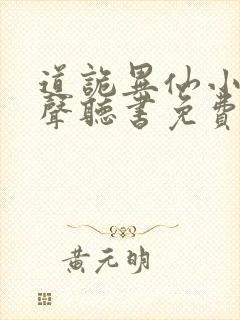 道詭異仙小
聲聽書免費
黃元明